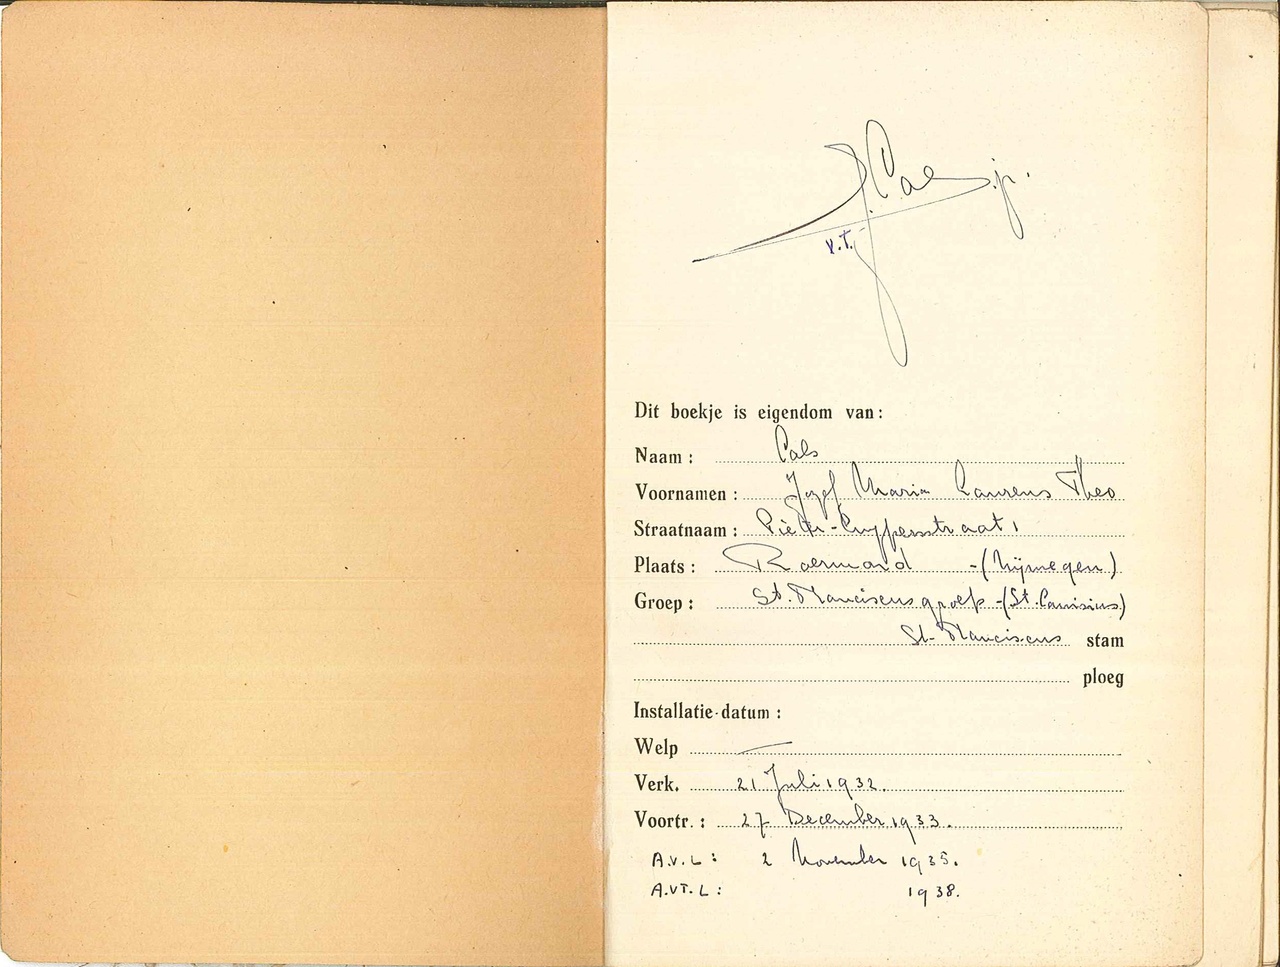 J. Cals jr.
V.T.
Dit boekje is eigendom van:
Naam: Cals
Voornamen: Jozef Maria Laurens Theo
Straatnaam: Pièter-Cuypersstraat 1
Plaats: Roermond -(Nijmegen)
Groep: St. Franciscusgroep -(St. Canisius)
St. Franciscus stam
ploeg
Installatie-datum:
Welp —
Verk. 21 Juli 1932.
Voortr.: 27 December 1933.
A.V.L: 2 November 1935.
A.VT.L: 1938.